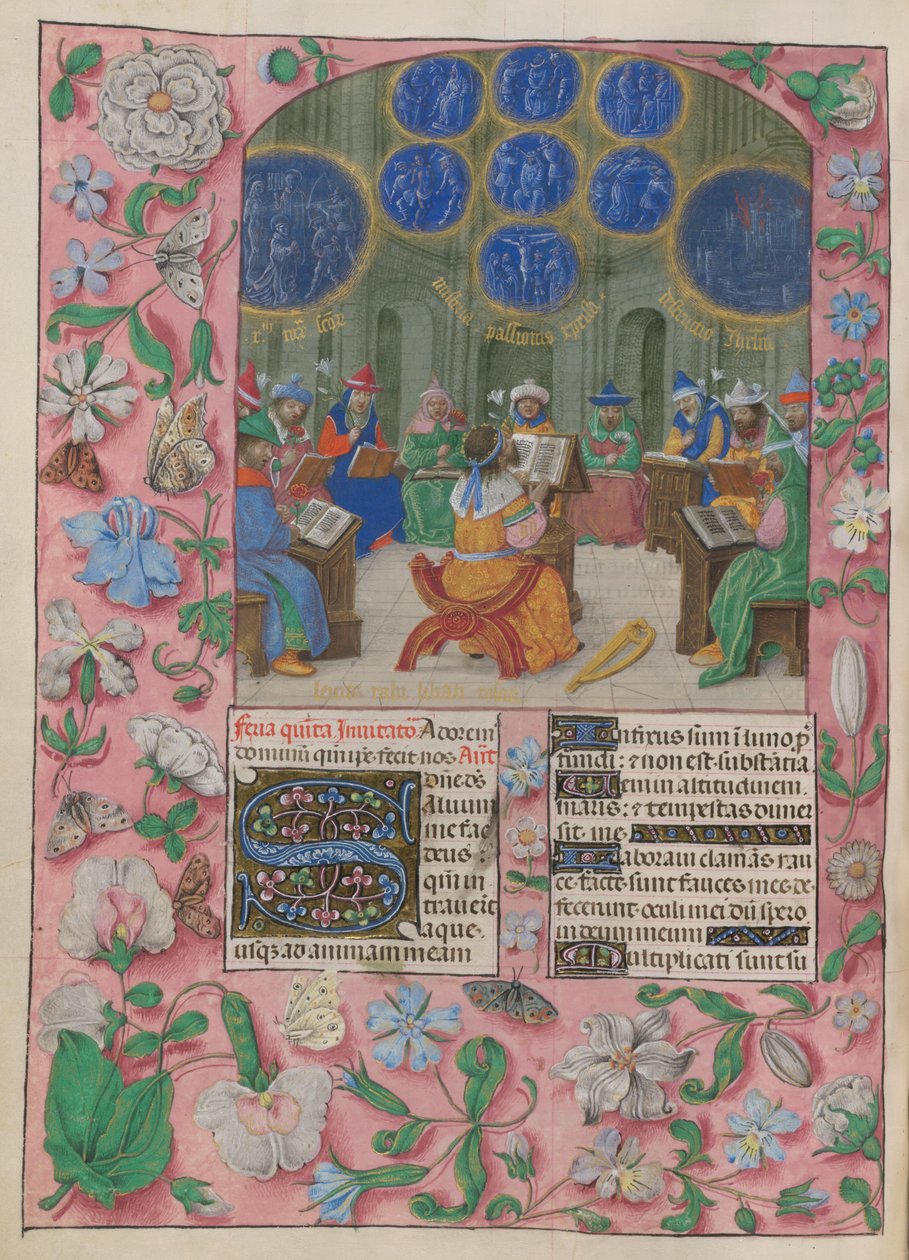 materia passionis
destructio Jherlm
Feria quīta Inuitatō. Adorem
dominum qui ipse fecit nos. Añt
Dñe dš
Saluum
me fac
deus:
qm̄ in
trauert̄
aque
usqꝫ ad animam meam
Infixus sum ī limo p
fundi: ⁊ non est substātia
Ueni in altitudinem
maris: ⁊ tempestas dimer
sit me
Laboraui clamās rau
ce facte sunt fauces mee de
fecerunt oculi mei dū spero
in deum meum
Multiplicati sunt su